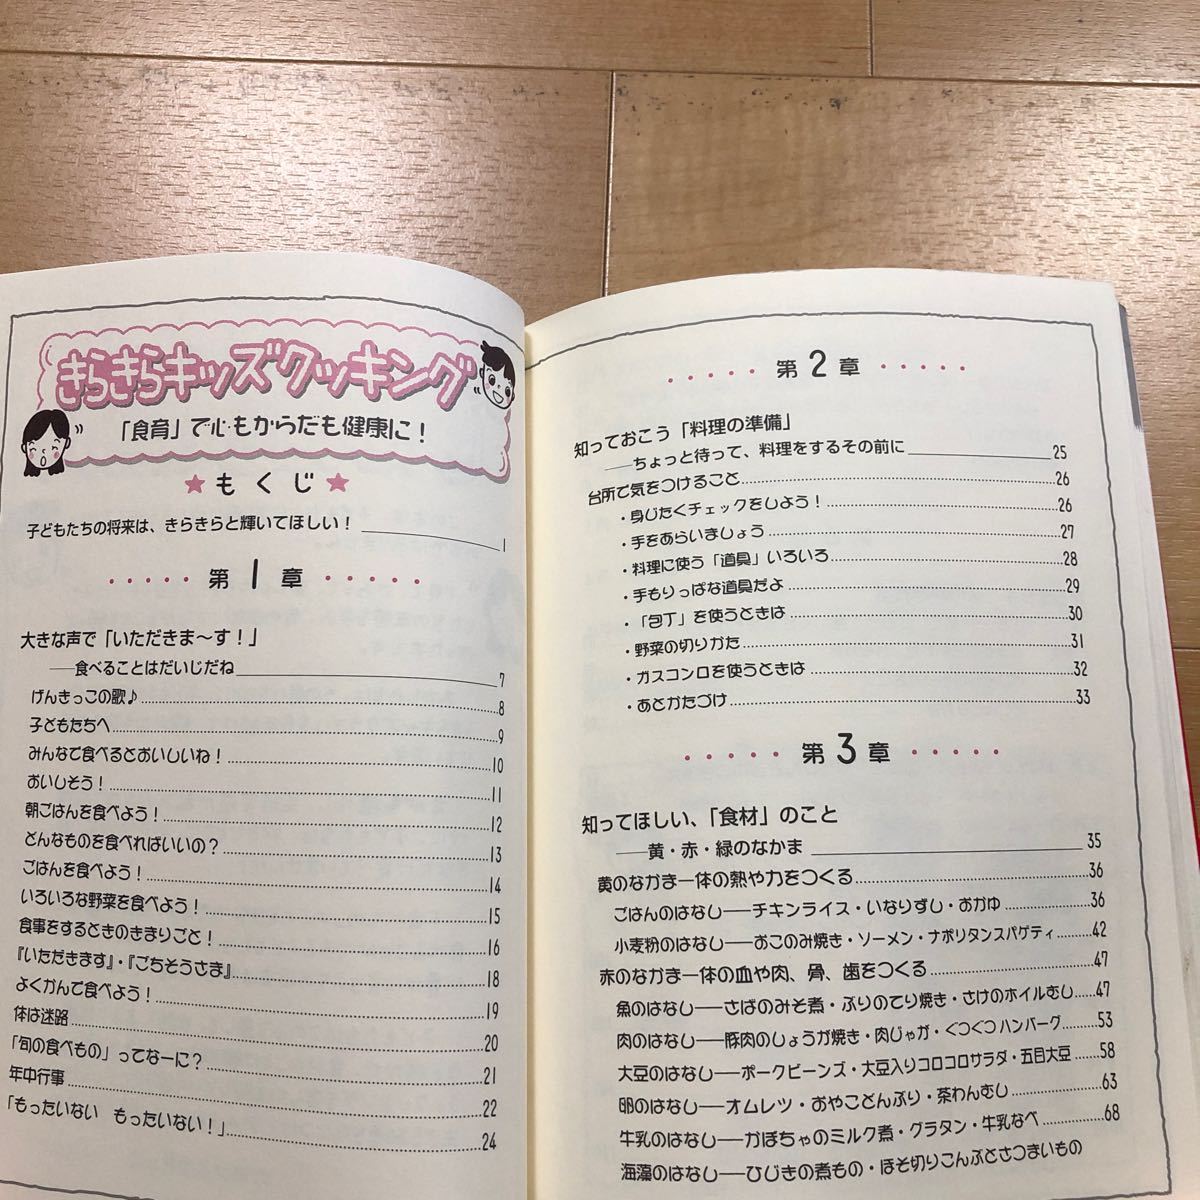 きらきらキッズクッキング
「食育」で心もからだも健康に！
★もくじ★
子どもたちの将来は、きらきらと輝いてほしい！ 1
第1章
大きな声で「いただきま〜す！」
――食べることはだいじだね 7
げんきっこの歌♪ 8
子どもたちへ 9
みんなで食べるとおいしいね！ 10
おいしそう！ 11
朝ごはんを食べよう！ 12
どんなものを食べればいいの？ 13
ごはんを食べよう！ 14
いろいろな野菜を食べよう！ 15
食事をするときのきまりごと！ 16
『いただきます』・『ごちそうさま』 18
よくかんで食べよう！ 19
体は迷路 20
「旬の食べもの」ってなーに？ 21
年中行事 22
「もったいない もったいない！」 24
第2章
知っておこう「料理の準備」
――ちょっと待って、料理をするその前に 25
台所で気をつけること 26
・身じたくチェックをしよう！ 26
・手をあらいましょう 27
・料理に使う「道具」いろいろ 28
・手もりっぱな道具だよ 29
・「包丁」を使うときは 30
・野菜の切りかた 31
・ガスコンロを使うときは 32
・あとかたづけ 33
第3章
知ってほしい、「食材」のこと
――黄・赤・緑のなかま 35
黄のなかま―体の熱や力をつくる 36
ごはんのはなし――チキンライス・いなりずし・おかゆ 36
小麦粉のはなし――おこのみ焼き・ソーメン・ナポリタンスパゲティ 42
赤のなかま―体の血や肉、骨、歯をつくる 47
魚のはなし――さばのみそ煮・ぶりのてり焼き・さけのホイルむし 47
肉のはなし――豚肉のしょうが焼き・肉じゃが・ぐつぐつハンバーグ 53
大豆のはなし――ポークビーンズ・大豆入りコロコロサラダ・五目大豆 58
卵のはなし――オムレツ・おやこどんぶり・茶わんむし 63
牛乳のはなし――かぼちゃのミルク煮・グラタン・牛乳なべ 68
海藻のはなし――ひじきの煮もの・ほそ切りこんぶとさつまいもの